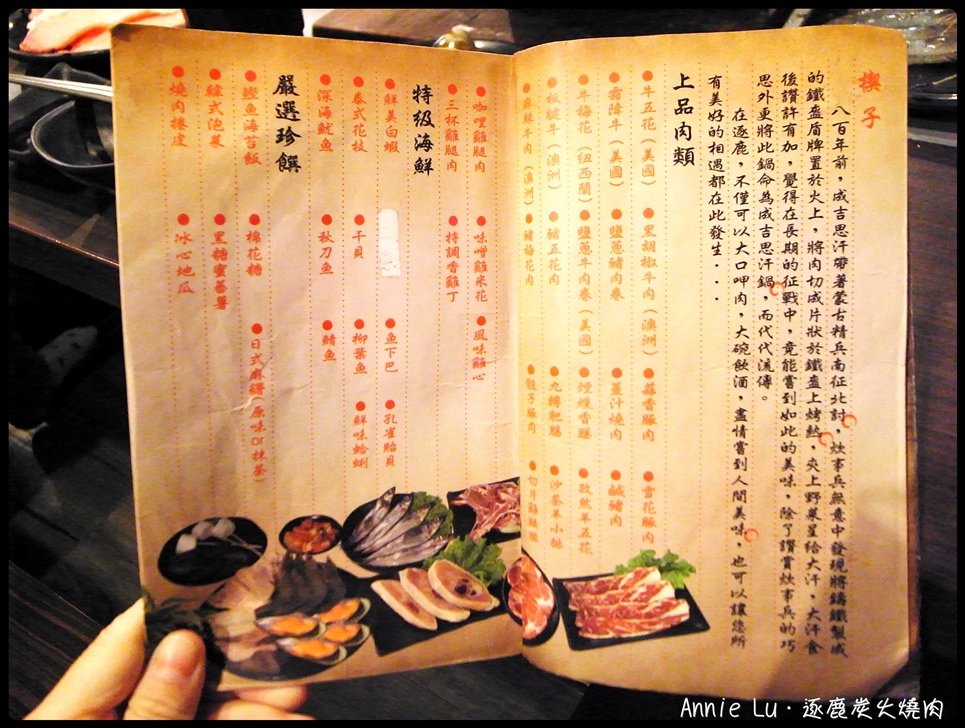 楔子
八百年前，成吉思汗帶著蒙古精兵南征北討，炊事兵無意中發現將鑄鐵製成
的鐵盔盾牌置於火上，將肉切成片狀於鐵盔上烤熟，夾上野菜呈給大汗，大汗食
後讚許有加，覺得在長期的征戰中，竟能嘗到如此的美味，除了讚賞炊事兵的巧
思外更將此鍋命為成吉思汗鍋，而代代流傳。
在逐鹿，不僅可以大口呷肉，大碗飲酒，盡情嘗到人間美味，也可以讓您所
有美好的相遇都在此發生...
上品肉類
●牛五花（美國）●黑胡椒牛肉（澳洲）●蒜香豚肉●雪花豚肉
●霜降牛（美國）●鹽蔥豬肉卷●薑汁燒肉●鹹豬肉
●牛梅花（紐西蘭）●鹽蔥牛肉卷（美國）●煙燻香腸●孜然羊五花
●板腱牛（澳洲）●豬五花肉●九轉肥腸●沙茶羊小排
●麻辣牛肉（澳洲）●豬梅花肉●骰子豚肉●切片雞腿排
●咖哩雞腿肉●味噌雞米花●風味雞心
●三杯雞腿肉●特調香雞丁
特級海鮮
●鮮美白蝦●魚下巴●孔雀貽貝
●泰式花枝●干貝●柳葉魚●鮮味蛤蜊
●深海魷魚●秋刀魚●鯖魚
嚴選珍饌
●鰹魚海苔飯●棉花糖●日式麻糬（原味or抹茶）
●韓式泡菜●黑糖蜜蕃薯
●燒肉捲皮●冰心地瓜
Annie Lu · 逐鹿炭火燒肉